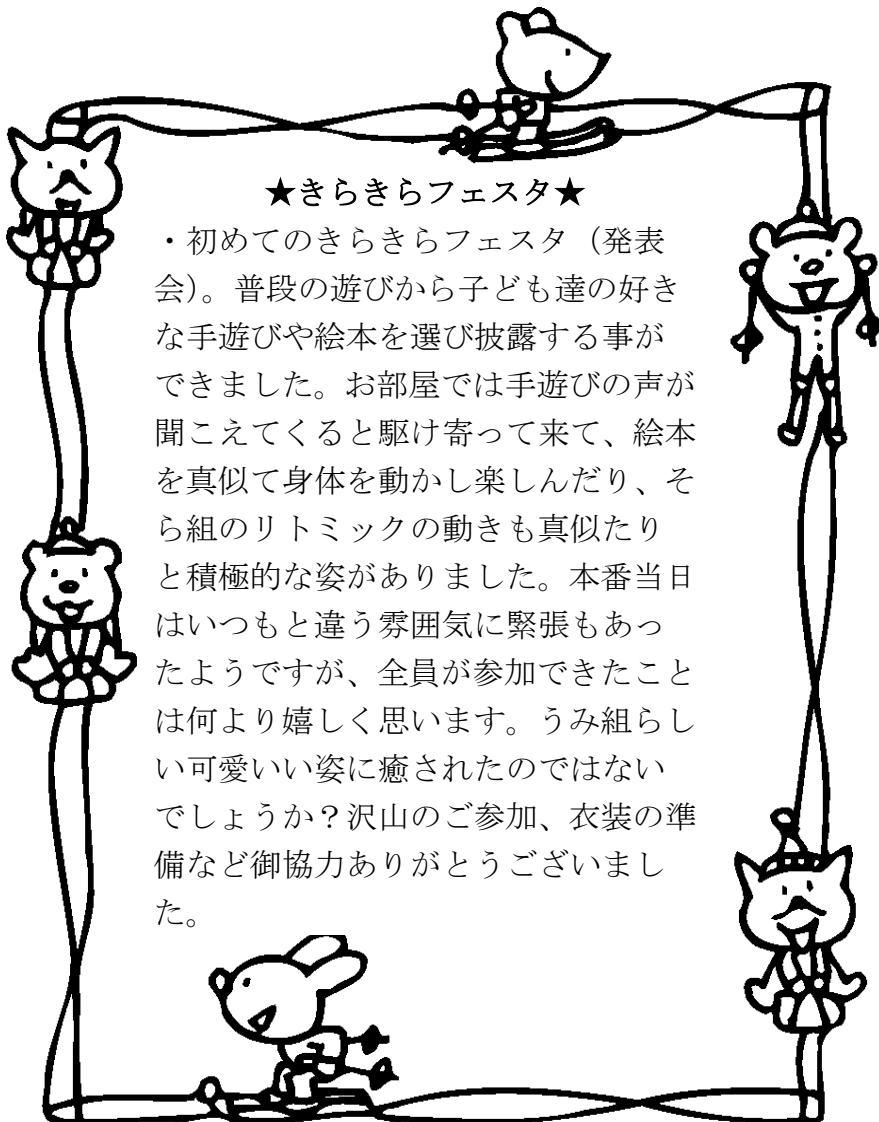 ★きらきらフェスタ★
・初めてのきらきらフェスタ（発表
会）。普段の遊びから子ども達の好き
な手遊びや絵本を選び披露する事が
できました。お部屋では手遊びの声が
聞こえてくると駆け寄って来て、絵本
を真似て身体を動かし楽しんだり、そ
ら組のリトミックの動きも真似たり
と積極的な姿がありました。本番当日
はいつもと違う雰囲気に緊張もあっ
たようですが、全員が参加できたこと
は何より嬉しく思います。うみ組らし
い可愛いい姿に癒されたのではない
でしょうか？沢山のご参加、衣装の準
備など御協力ありがとうございまし
た。